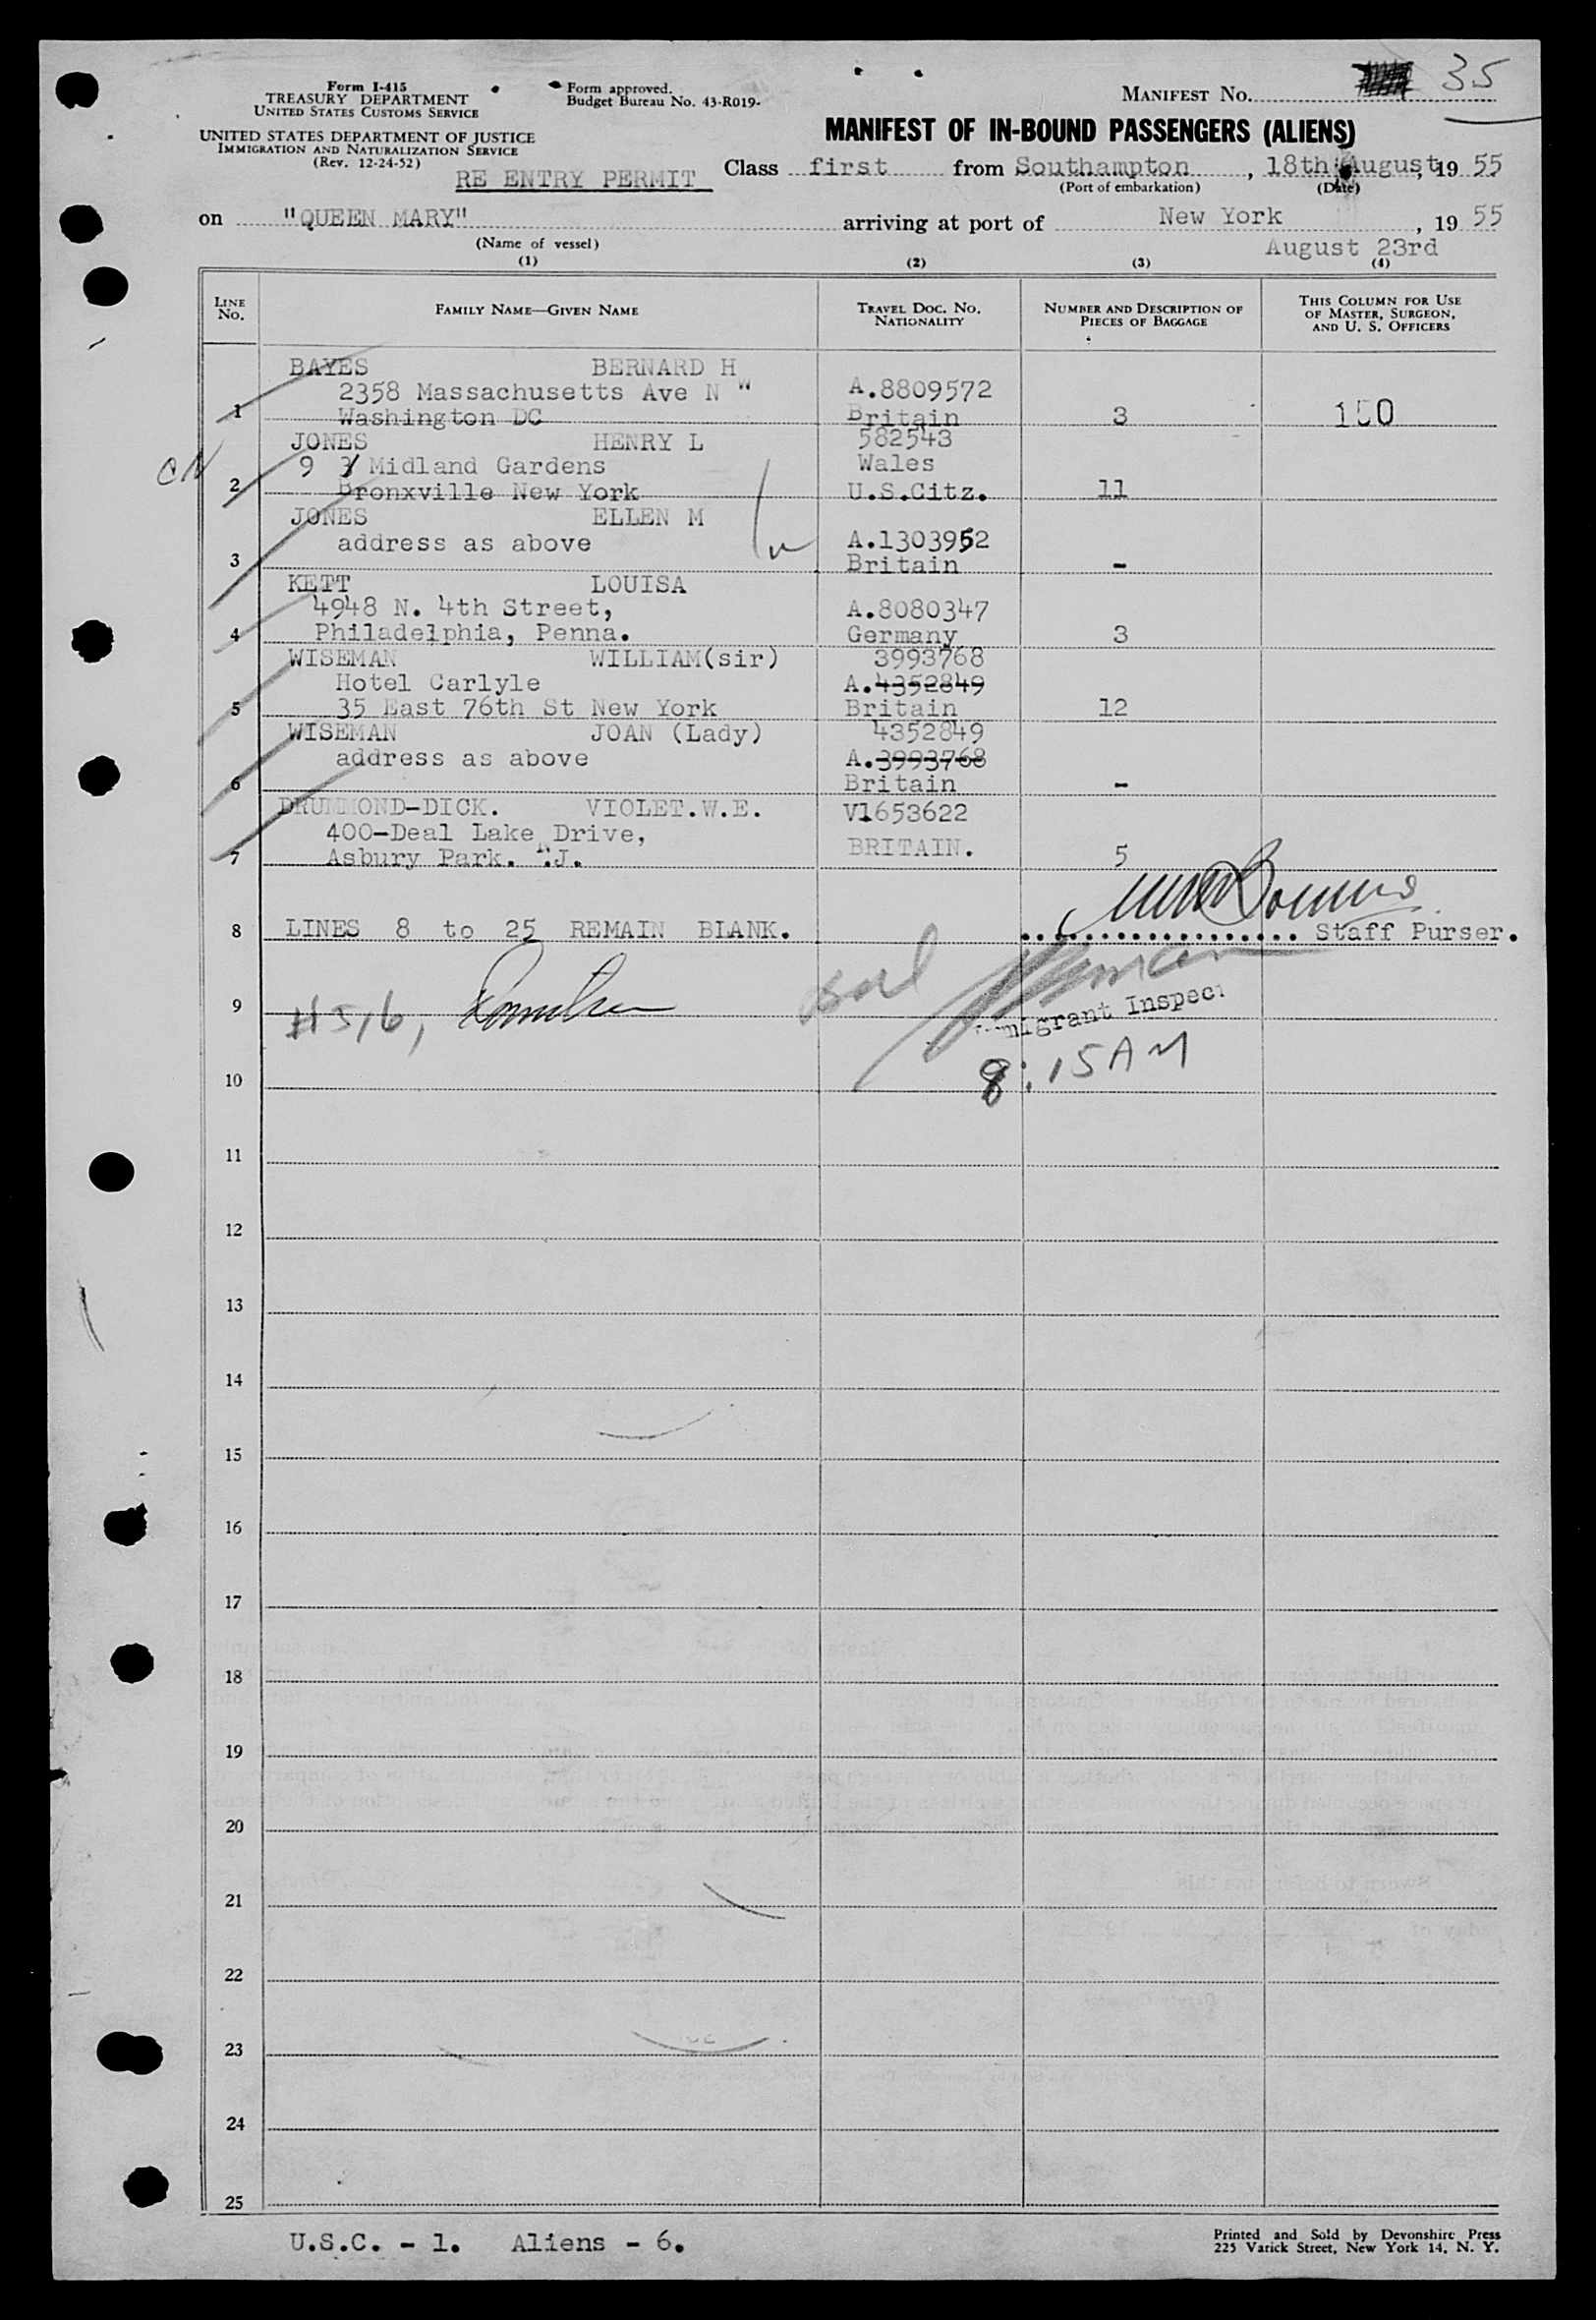 35
Form I-415
TREASURY DEPARTMENT
UNITED STATES CUSTOMS SERVICE
Form approved.
Budget Bureau No. 43-R019.
MANIFEST No.
UNITED STATES DEPARTMENT OF JUSTICE
IMMIGRATION AND NATURALIZATION SERVICE
(Rev. 12-24-52)
MANIFEST OF IN-BOUND PASSENGERS (ALIENS)
RE ENTRY PERMIT
Class first from Southampton, 18th August, 19 55
(Port of embarkation) (Date)
on "QUEEN MARY" arriving at port of New York, 19 55
(Name of vessel) August 23rd
(1) (2) (3) (4)
LINE No. FAMILY NAME—GIVEN NAME TRAVEL DOC. NO. NATIONALITY NUMBER AND DESCRIPTION OF PIECES OF BAGGAGE THIS COLUMN FOR USE OF MASTER, SURGEON, AND U. S. OFFICERS
BAYES BERNARD H
2358 Massachusetts Ave N W A.8809572
1 Washington DC Britain 3 100
JONES HENRY L 582543
9 3 Midland Gardens Wales
2 Bronxville New York U.S.Citz. 11
JONES ELLEN M
address as above A.1303952
3 Britain -
KETT LOUISA
4948 N. 4th Street, A.8080347
4 Philadelphia, Penna. Germany 3
WISEMAN WILLIAM(sir) 3993768
Hotel Carlyle A.4352849
5 35 East 76th St New York Britain 12
WISEMAN JOAN (Lady) 4352849
address as above A.3993768
6 Britain -
DRUMMOND-DICK. VIOLET.W.E. V1653622
400-Deal Lake Drive,
7 Asbury Park. N.J. BRITAIN. 5
8 LINES 8 to 25 REMAIN BLANK. Staff Purser.
9 #5,6,
Immigrant Inspect
8:15 AM
10
11
12
13
14
15
16
17
18
19
20
21
22
23
24
25
U.S.C. - 1. Aliens - 6.
Printed and Sold by Devonshire Press
225 Varick Street, New York 14, N. Y.